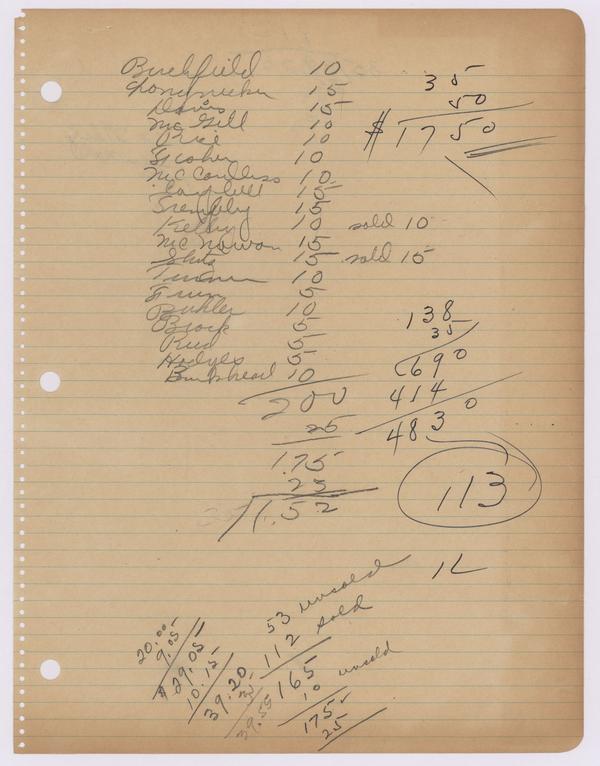 Burchfield 10
Longnecker 15
Davis 15
McGill 10
Price 10
10
McCandless 10
Campbell 15
Trembly 15
Kelly 10 sold 10
McGowan 15
15 sold 15
Turner 10
5
Buhler 10
Brock 5
Reed 5
Hodges 5
Bankhead 10
200
25
1.75
23
1.52
35
50
$ 17 50
138
35
690
414
483 0
113
12
53 unsold
112 sold
165
10 unsold
175
25
20.00
9.05
$29.05
10.15
39.20
35
39.55